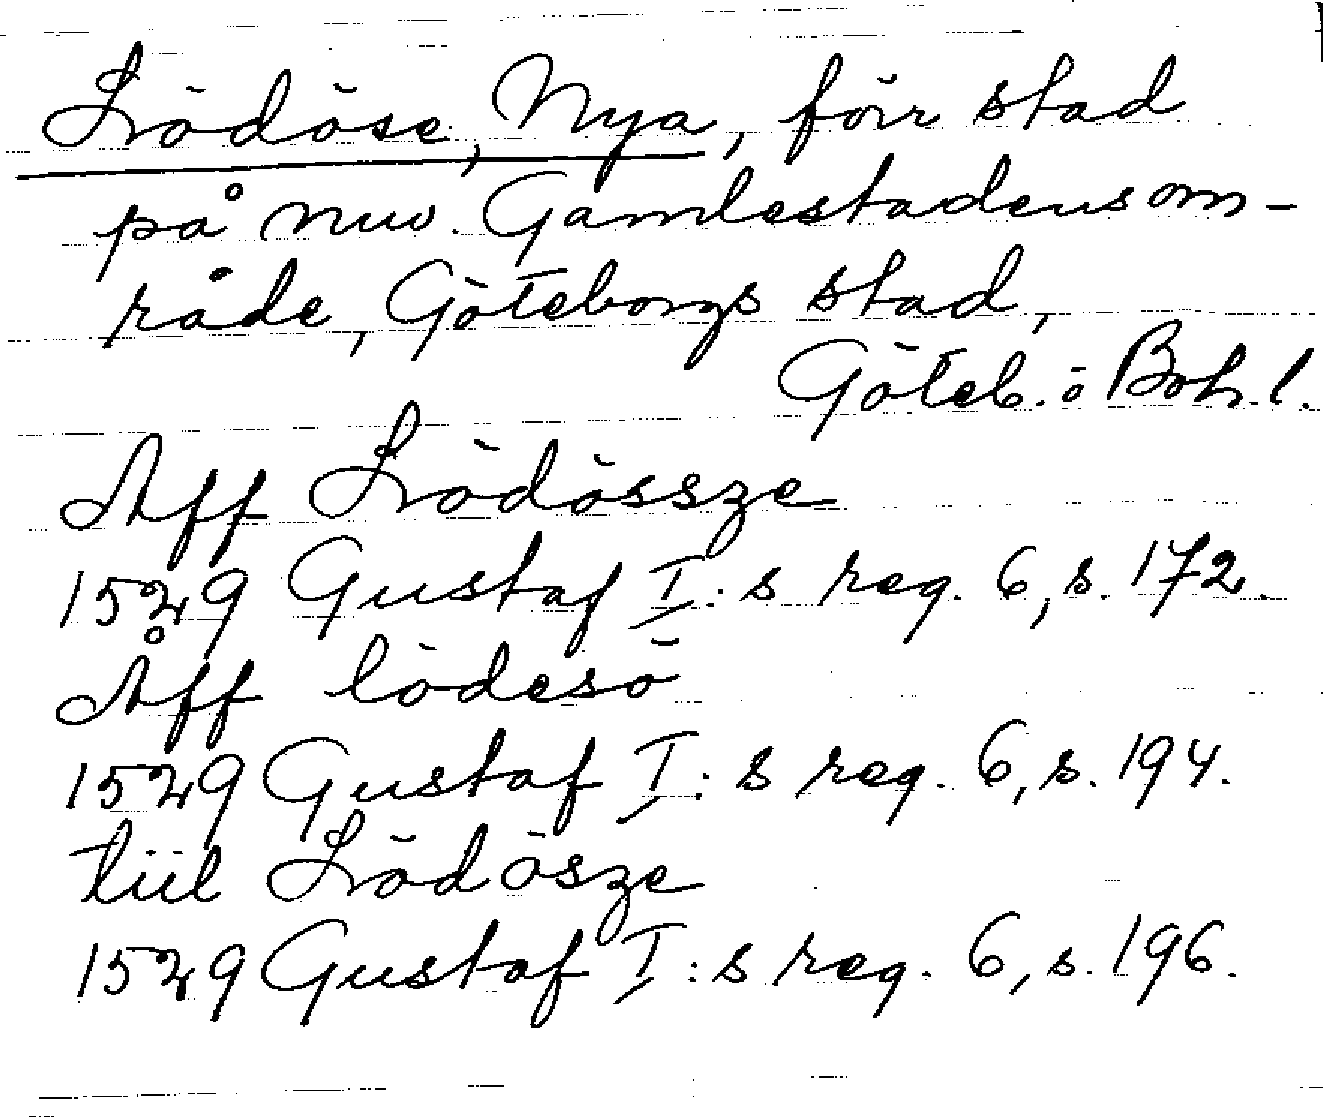 Lödöse, Nya, förr stad
på nuv. Gamlestadens om-
råde, Göteborgs stad,
Göteb. o Boh. l.
Aff Lödössze
1529 Gustaf I:s reg. 6, s. 172.
Åff lödesö
1529 Gustaf I:s reg. 6, s. 194.
tiil Lödösze
1529 Gustaf I:s reg. 6, s. 196.